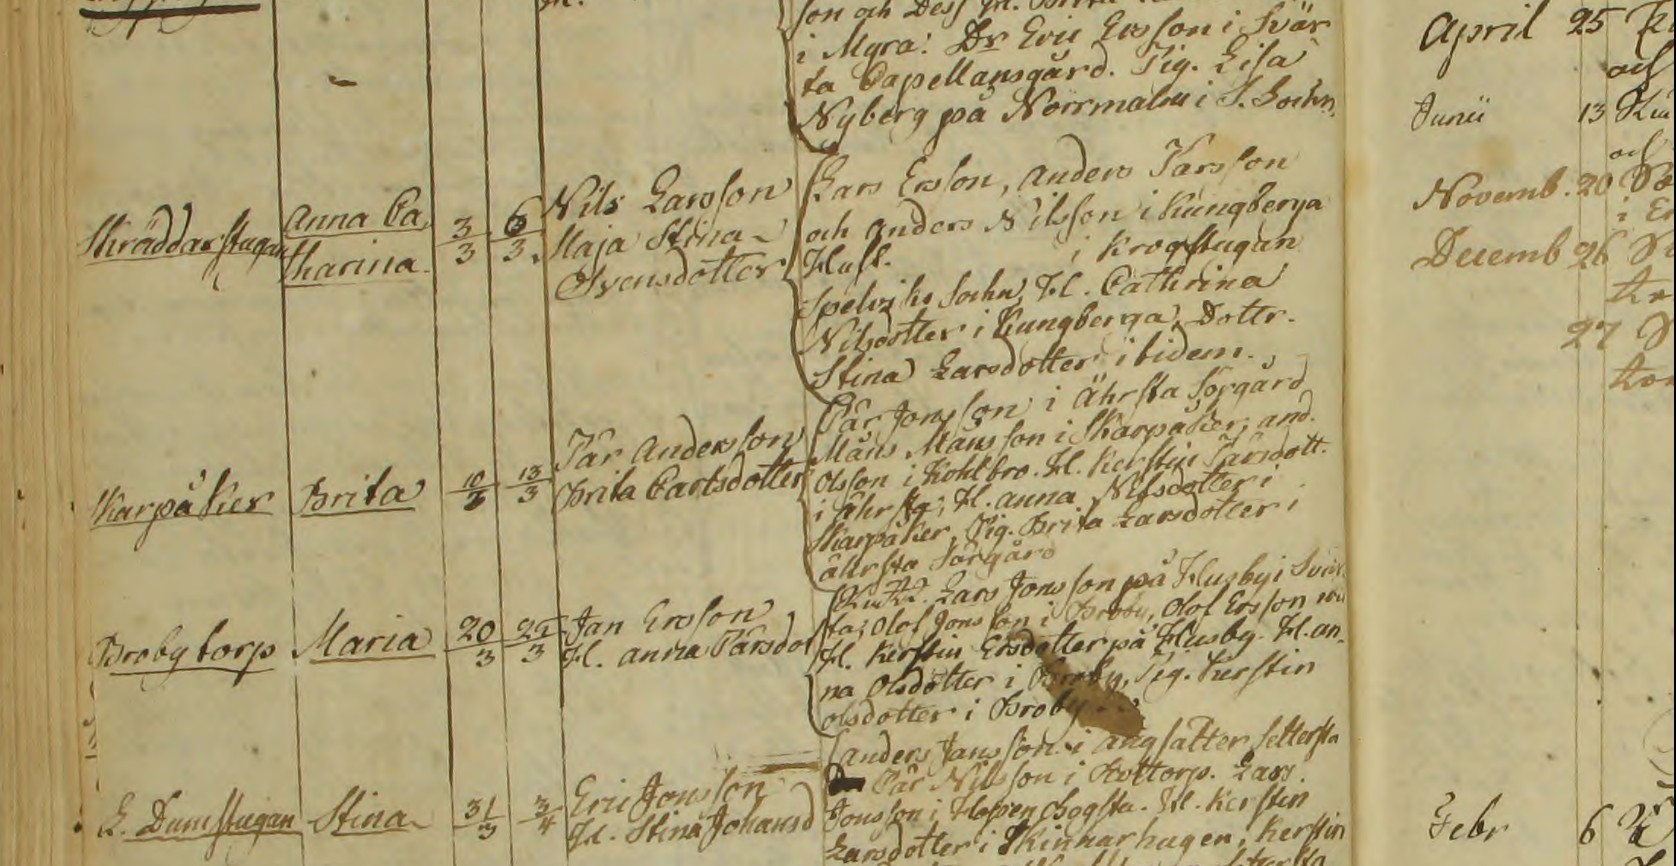 son och Dess
i Myra. Dr Eric Ersson i Svär
ta Capellansgård. Pig. Lisa
Nyberg på Norrmalm i S. Sochn.
Skräddarstugan
Anna Ca
tharina
3/3
6/3
Nils Larsson
Maja Stina
Svensdotter
Lars Ersson, Anders Larsson
och Anders Nilsson i Kungberga
Hust. i Krogstugan
Spelviks Sochn, H. Cathrina
Nilsdotter i Kungberga, Dottr.
Stina Larsdotter ibidem.
Skarpåker
Brita
10/3
13/3
Pär Andersson
Brita Carlsdotter
Pär Jonsson i Ährsta Sörgård
Måns Månsson i Skarpåker, And.
Olsson i Kohlbro. H. Kerstin Pärsdott.
i Ährsta; H. Anna Nilsdotter i
Skarpåker, Pig. Brita Larsdotter i
Ährsta Sörgård
Broby torp
Maria
20/3
25/3
Jan Ersson
H. Anna Pärsdot
Lars Jonsson på Husby i Svär
ta; Olof Jonsson i Broby, Olof Ersson
H. Kerstin Ersdotter på Husby. H. An
na Olsdotter i Broby, Pig. Kerstin
Olsdotter i Broby
Dumstugan
Stina
31/3
3/4
Eric Jonsson
H. Stina Johansd
Anders Jansson i Ängsätter Settersta
Pär Nilsson i Lars.
Jonsson i Bogsta. H. Kerstin
Larsdotter i Skinnarhagen, Kerstin
April 25
och
Junii 13
och
Novemb. 20
Decemb 26
27
Febr 6